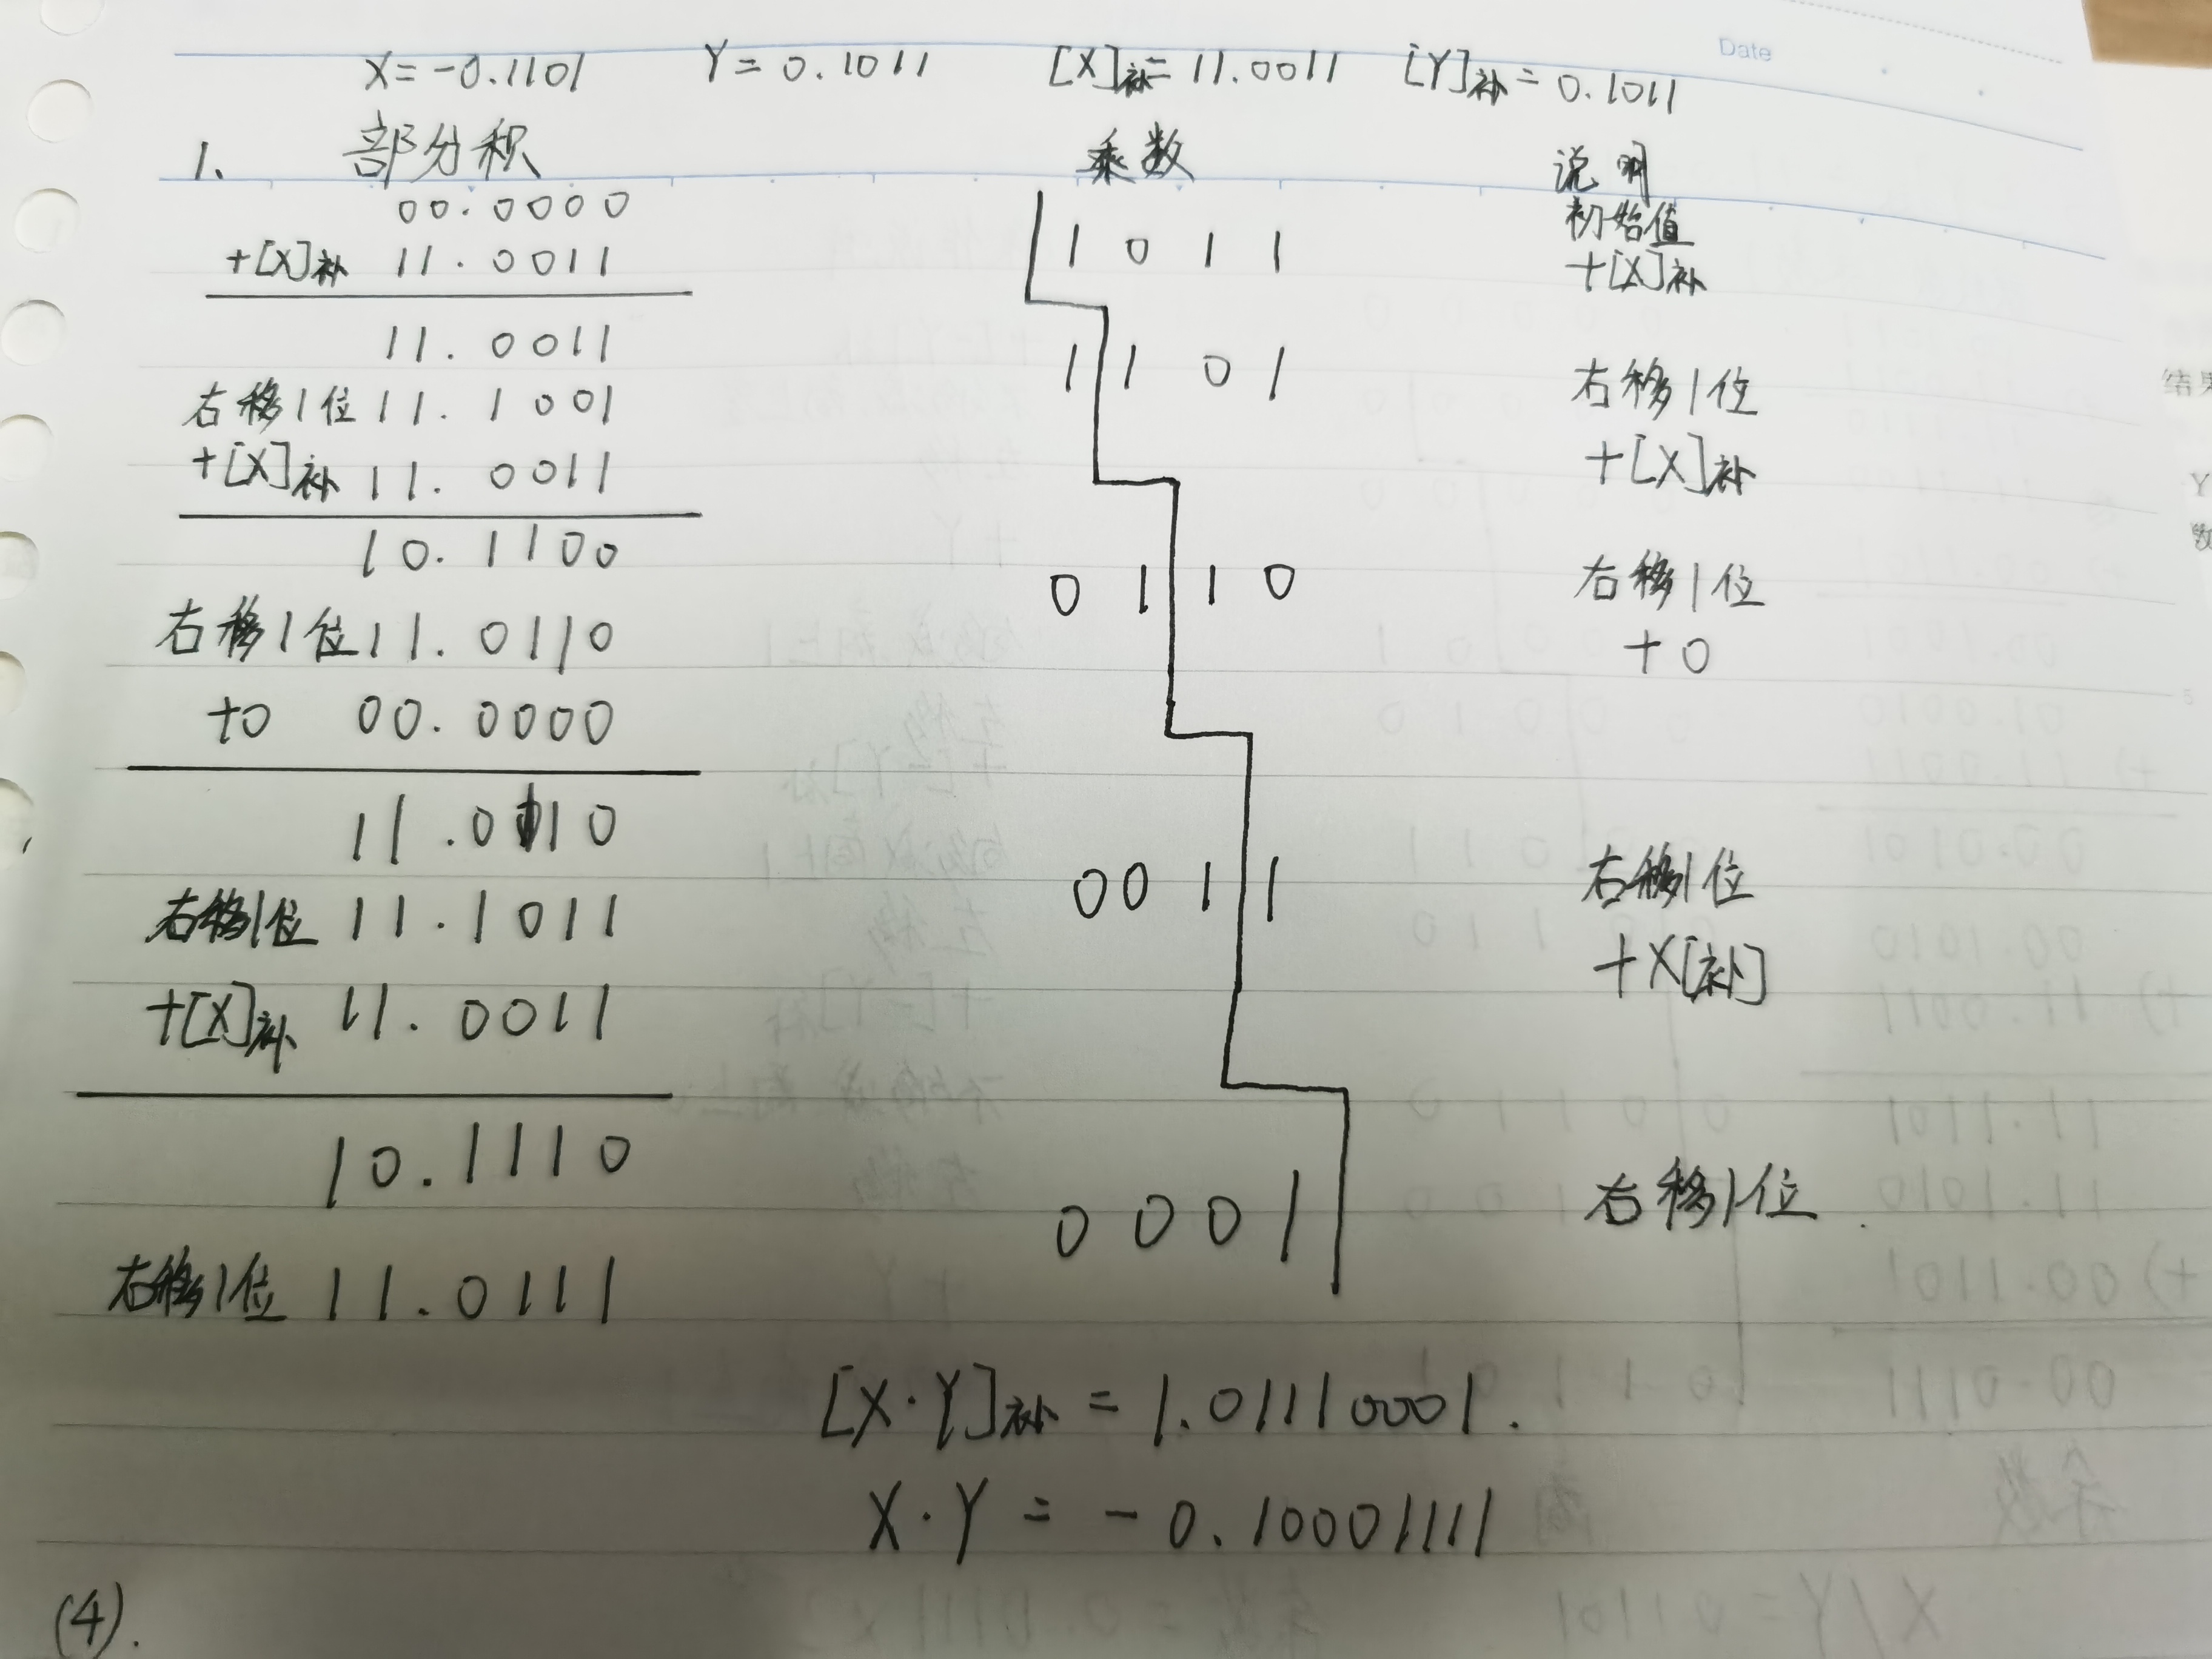 Date
X=-0.1101 Y=0.1011 [X]补=11.0011 [Y]补=0.1011
1、 部分积 乘数 说明
00.0000 初始值
+[X]补 11.0011 1 0 1 1 +[X]补
11.0011
右移1位 11.1001 1 1 0 1 右移1位
+[X]补 11.0011 +[X]补
10.1100
右移1位 11.0110 0 1 1 0 右移1位
+0 00.0000 +0
11.0110
右移1位 11.1011 0 0 1 1 右移1位
+[X]补 11.0011 +X[补]
10.1110
右移1位 11.0111 0 0 0 1 右移1位
[X·Y]补 = 1.01110001.
X·Y = -0.10001111
(4).
结果
Y
数